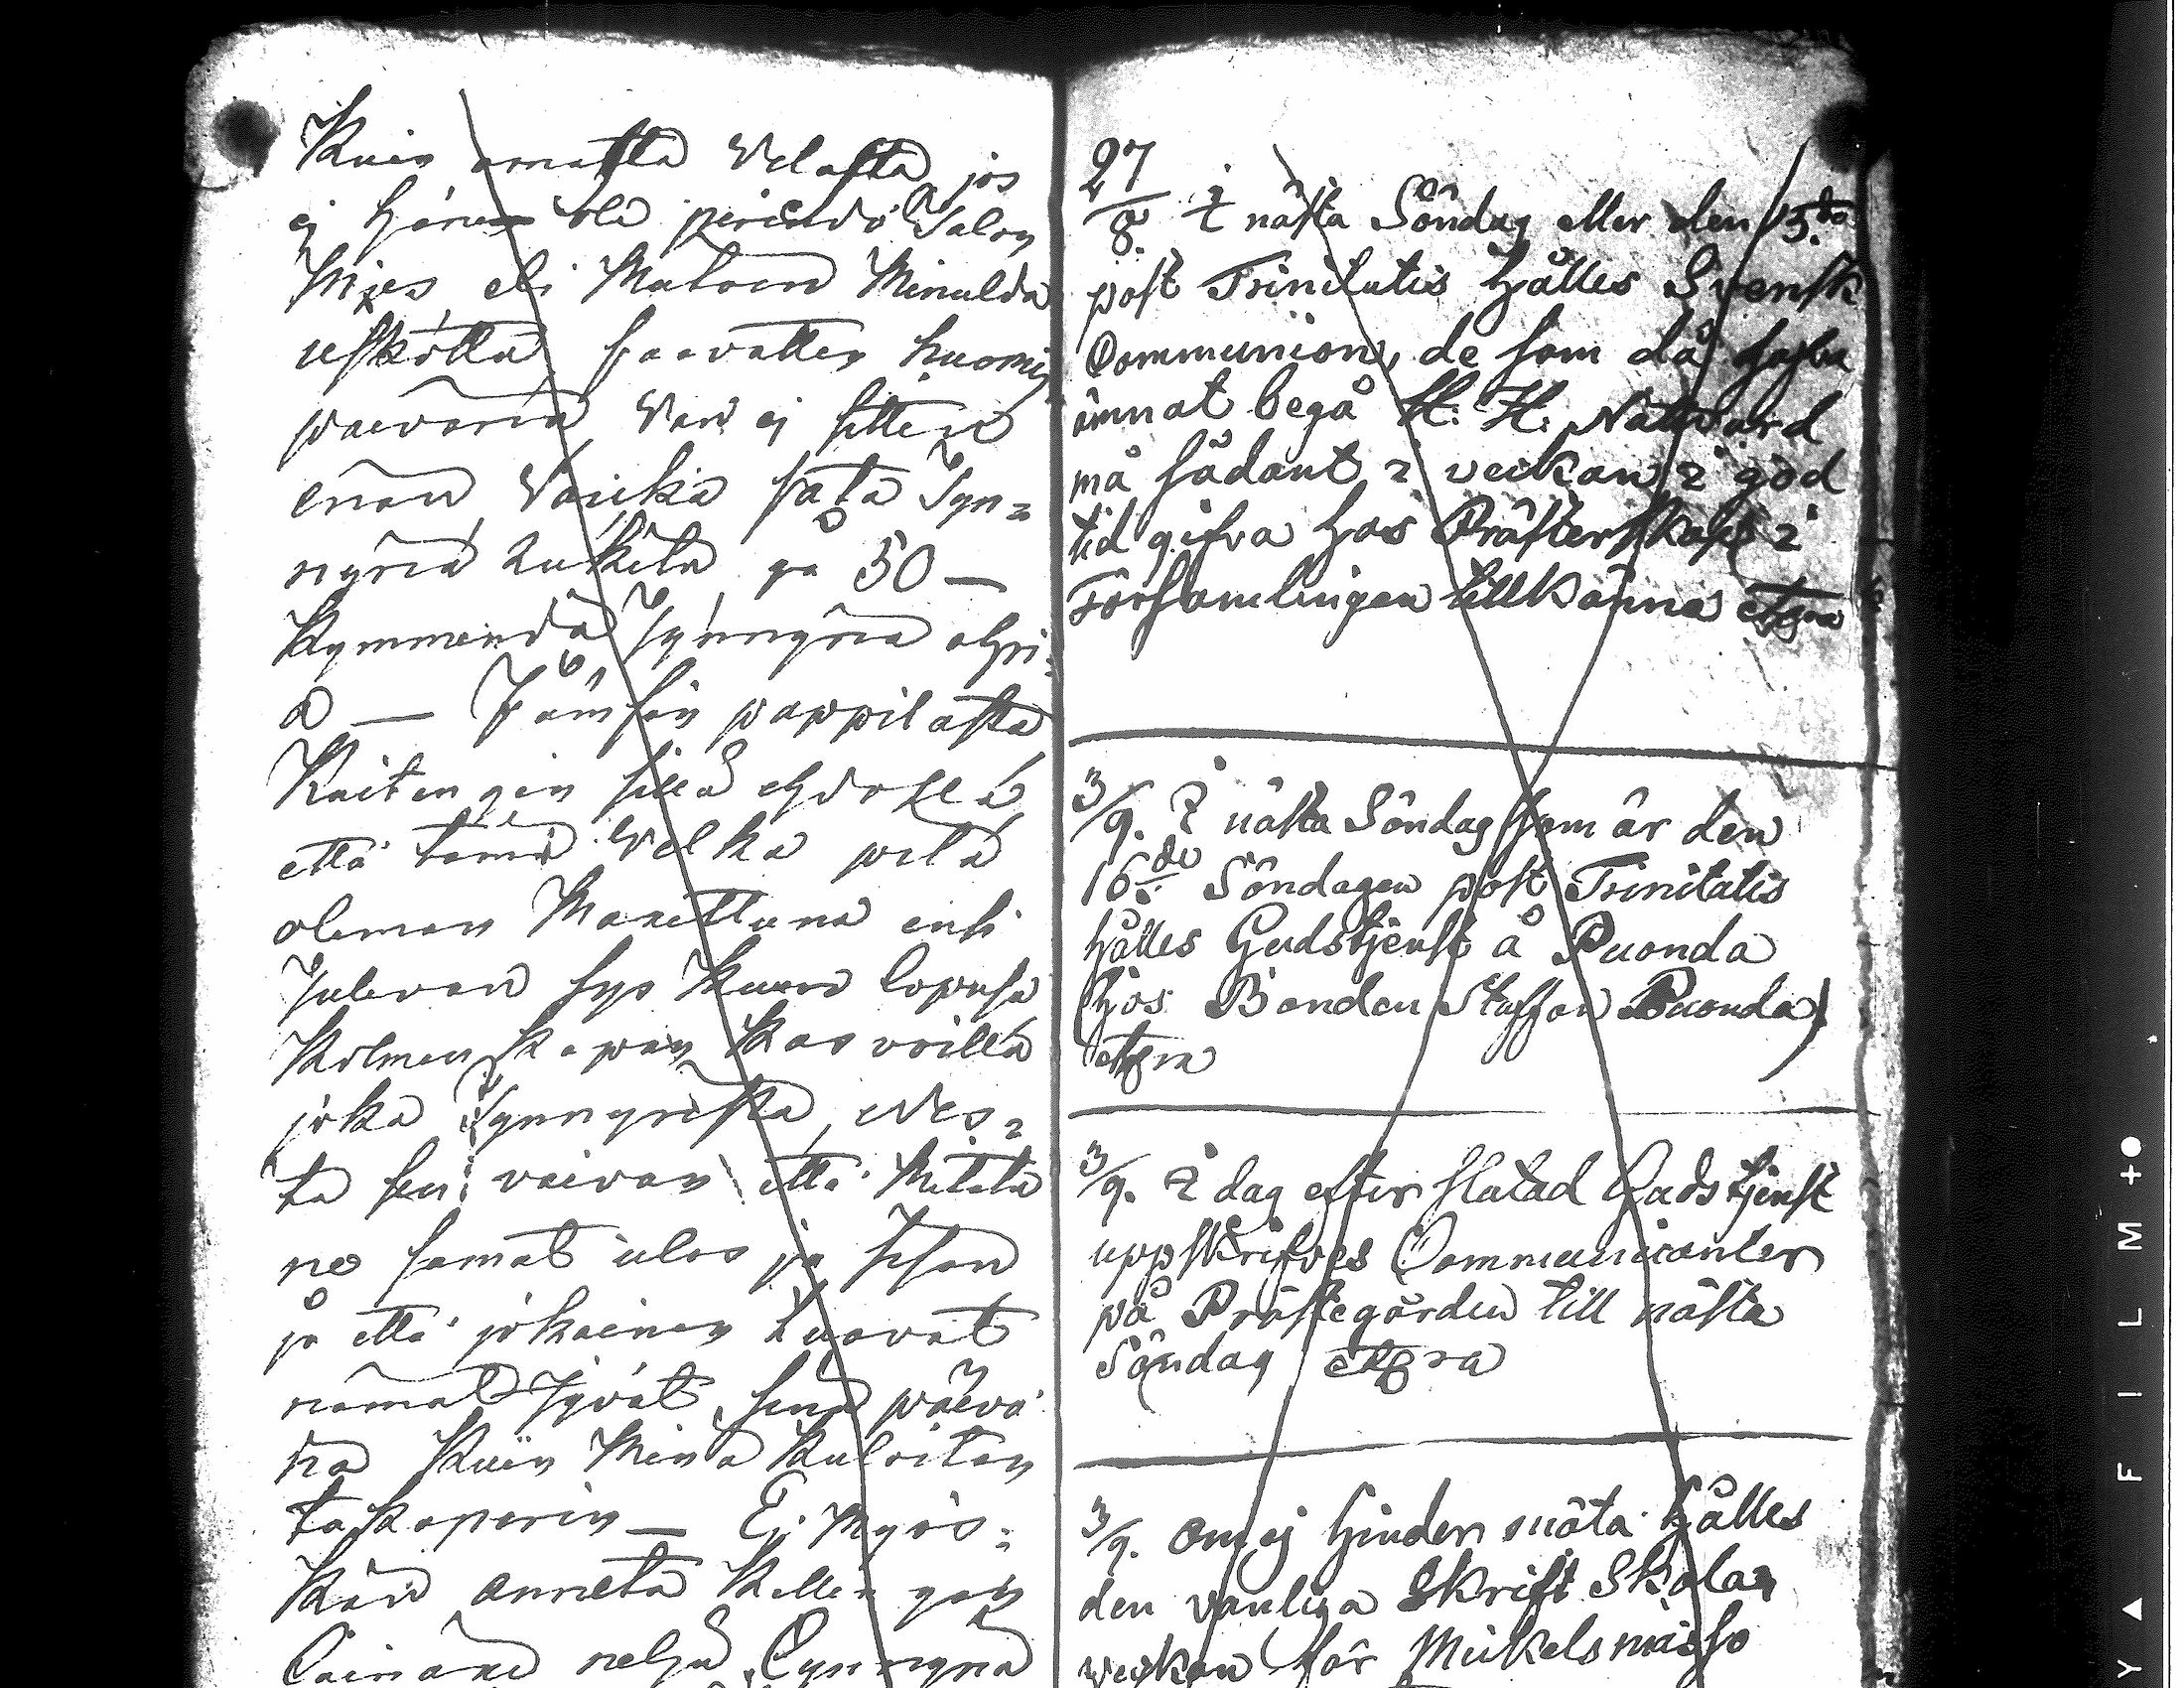 Kuin omasta Velasta jos
ej hänen ole perindö Talon
Mies eli Matoin Minulda
uskotta saavatten huomis
päevänä Vai ej sitten
enän Vaicka sata Tyn=
nyriä Lukita ga 50 —
Kymmendä Tynnyriä ohri=
a — Jämsän pappilasta
Kaitengin sillä ehdolla
että tämä Velka pitä
oleman Maxettuna ensi
Tulevan Sys kuun lopusa
Kolmen Kapan Kasvoilla
joka Tynnyristä, Nes=
tä sen vaivan että Mitata
ne samat ulos ja sisan
ja että jokainen tuovat
nämät Jyvät sinä päevä
nä Kuin Minä Kuloitan
takaperin — Ej myös=
kän anneta Kellen gän
Enämbä neljä Tynnyriä
27/8. I nästa Söndag eller den 15:da
post Trinitatis hålles Svensk
Communion, de som då hafva
ämnat begå H: H: Nattvard
må sådant i veckan i god
tid gifva hos Prästerskapet i
Församlingen tillkänna etc:ra
3/9. I nästa Söndag som är den
16:de Söndagen post Trinitatis
hålles Gudstjenst å Puonda
(hos Bonden Staffan Puonda)
etc:ra
3/9. I dag efter slutad Gudstjenst
uppskrifves Communicanter
på Prästegården till nästa
Söndag etc:ra
3/9. Om ej hinder möta hålles
den vanliga Skrift Skolan
veckan för Mickelsmässo
Y ▲ F I L M +●